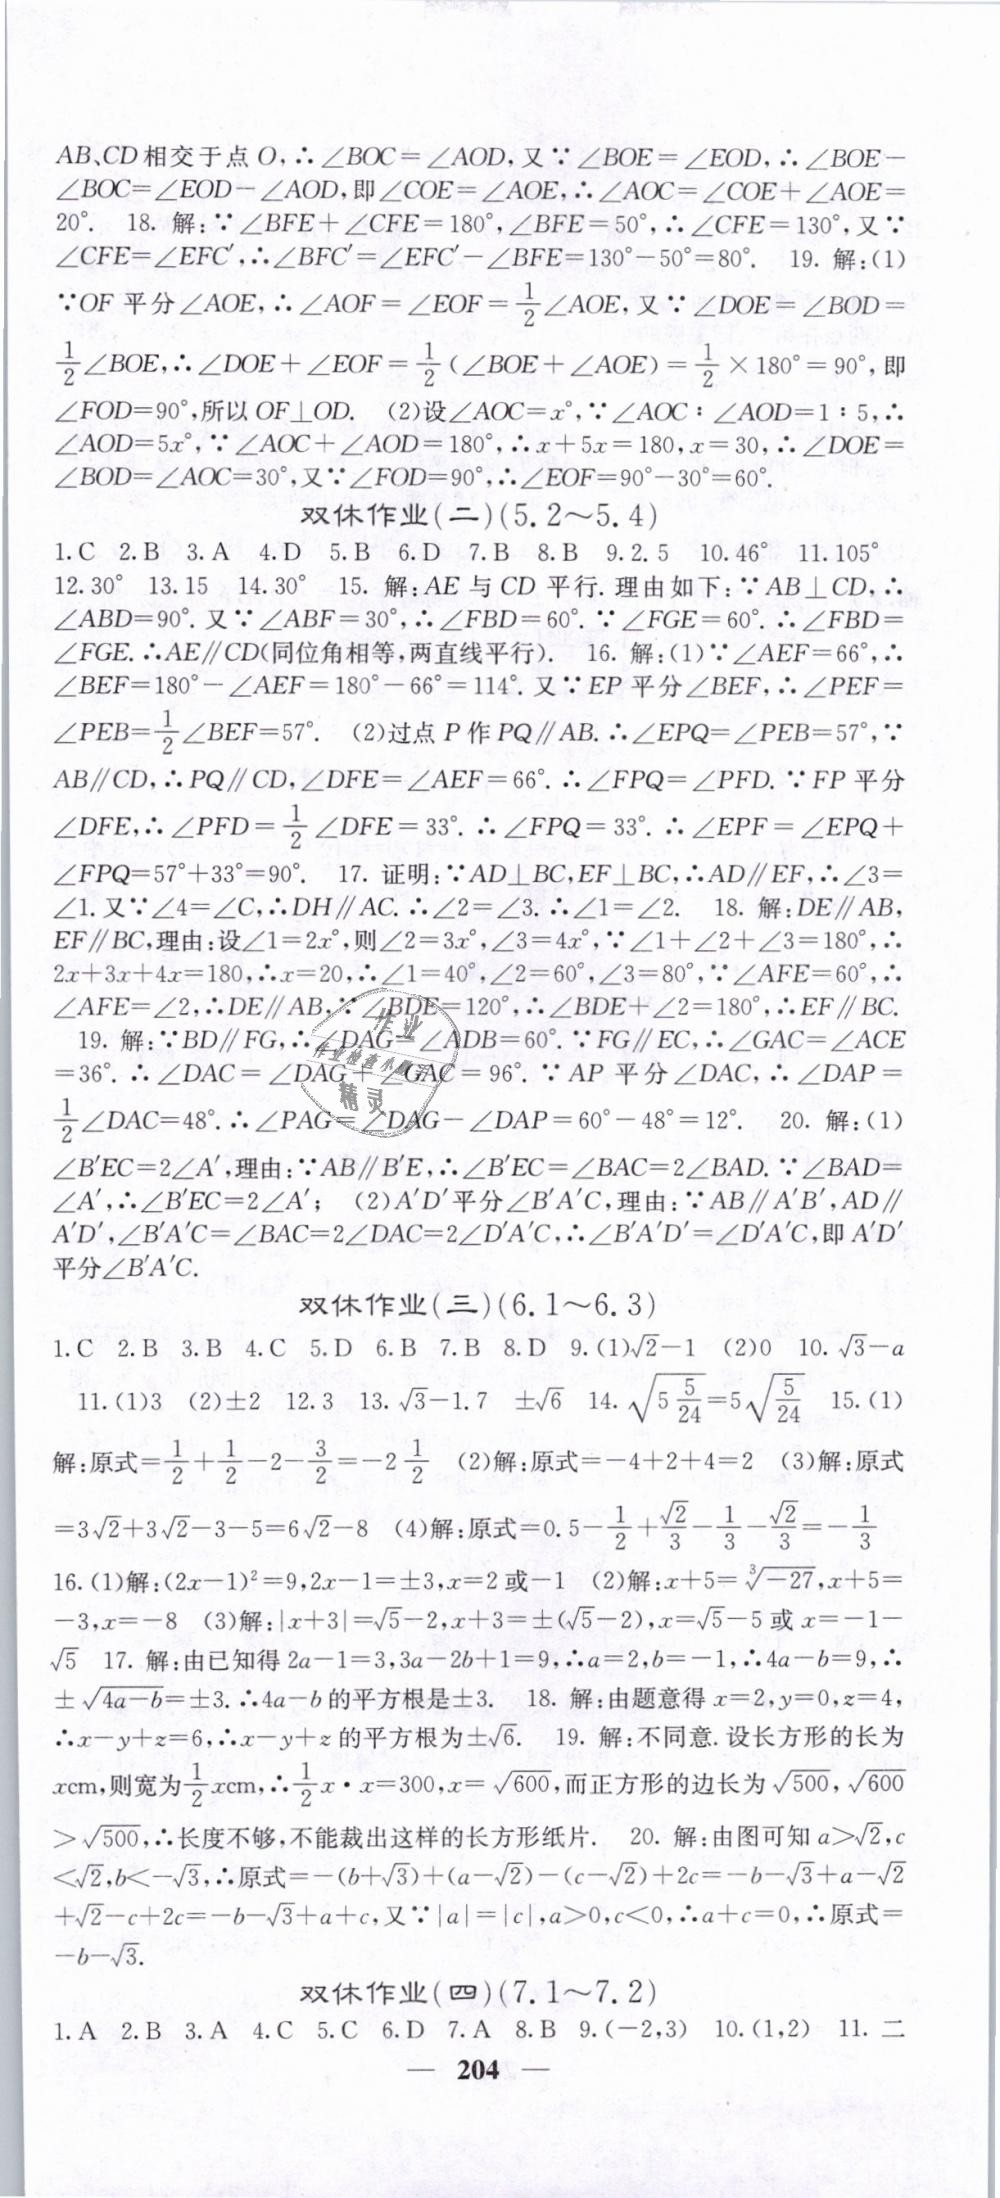 AB、CD相交于点O,∴∠BOC=∠AOD,又∵∠BOE=∠EOD,∴∠BOE-
∠BOC=∠EOD-∠AOD,即∠COE=∠AOE,∴∠AOC=∠COE+∠AOE=
20°. 18. 解:∵∠BFE+∠CFE=180°,∠BFE=50°,∴∠CFE=130°,又∵
∠CFE=∠EFC′,∴∠BFC′=∠EFC′-∠BFE=130°-50°=80°. 19. 解:(1)
∵OF平分∠AOE,∴∠AOF=∠EOF=1/2∠AOE,又∵∠DOE=∠BOD=
1/2∠BOE,∴∠DOE+∠EOF=1/2(∠BOE+∠AOE)=1/2×180°=90°,即
∠FOD=90°,所以OF⊥OD. (2)设∠AOC=x°,∵∠AOC∶∠AOD=1∶5,∴
∠AOD=5x°,∵∠AOC+∠AOD=180°,∴x+5x=180,x=30,∴∠DOE=
∠BOD=∠AOC=30°,又∵∠FOD=90°,∴∠EOF=90°-30°=60°.
双休作业(二)(5.2～5.4)
1.C 2.B 3.A 4.D 5.B 6.D 7.B 8.B 9.2.5 10.46° 11.105°
12.30° 13.15 14.30° 15. 解:AE与CD平行.理由如下:∵AB⊥CD,∴
∠ABD=90°.又∵∠ABF=30°,∴∠FBD=60°.∵∠FGE=60°.∴∠FBD=
∠FGE.∴AE∥CD(同位角相等,两直线平行). 16. 解:(1)∵∠AEF=66°,∴
∠BEF=180°-∠AEF=180°-66°=114°.又∵EP平分∠BEF,∴∠PEF=
∠PEB=1/2∠BEF=57°. (2)过点P作PQ∥AB.∴∠EPQ=∠PEB=57°,∵
AB∥CD,∴PQ∥CD,∠DFE=∠AEF=66°.∴∠FPQ=∠PFD.∵FP平分
∠DFE,∴∠PFD=1/2∠DFE=33°.∴∠FPQ=33°.∴∠EPF=∠EPQ+
∠FPQ=57°+33°=90°. 17. 证明:∵AD⊥BC,EF⊥BC,∴AD∥EF,∴∠3=
∠1.又∵∠4=∠C,∴DH∥AC.∴∠2=∠3.∴∠1=∠2. 18. 解:DE∥AB,
EF∥BC,理由:设∠1=2x°,则∠2=3x°,∠3=4x°,∵∠1+∠2+∠3=180°,∴
2x+3x+4x=180,∴x=20,∴∠1=40°,∠2=60°,∠3=80°,∵∠AFE=60°,∴
∠AFE=∠2,∴DE∥AB,∵∠BDE=120°,∴∠BDE+∠2=180°,∴EF∥BC.
19. 解:∵BD∥FG,∴∠DAG=∠ADB=60°.∵FG∥EC,∴∠GAC=∠ACE
=36°.∴∠DAC=∠DAG+∠GAC=96°.∵AP平分∠DAC,∴∠DAP=
1/2∠DAC=48°.∴∠PAG=∠DAG-∠DAP=60°-48°=12°. 20. 解:(1)
∠B′EC=2∠A′,理由:∵AB∥B′E,∴∠B′EC=∠BAC=2∠BAD.∵∠BAD=
∠A′,∴∠B′EC=2∠A′; (2)A′D′平分∠B′A′C,理由:∵AB∥A′B′,AD∥
A′D′,∠B′A′C=∠BAC=2∠DAC=2∠D′A′C,∴∠B′A′D′=∠D′A′C,即A′D′
平分∠B′A′C.
双休作业(三)(6.1～6.3)
1.C 2.B 3.B 4.C 5.D 6.B 7.B 8.D 9.(1)√2-1 (2)0 10.√3-a
11.(1)3 (2)±2 12.3 13.√3-1.7 ±√6 14.√(5 5/24)=5√(5/24) 15.(1)
解:原式=1/2+1/2-2-3/2=-2 1/2 (2)解:原式=-4+2+4=2 (3)解:原式
=3√2+3√2-3-5=6√2-8 (4)解:原式=0.5-1/2+√2/3-1/3-√2/3=-1/3
16.(1)解:(2x-1)²=9,2x-1=±3,x=2或-1 (2)解:x+5=∛-27,x+5=
-3,x=-8 (3)解:|x+3|=√5-2,x+3=±(√5-2),x=√5-5或x=-1-
√5 17. 解:由已知得2a-1=3,3a-2b+1=9,∴a=2,b=-1,∴4a-b=9,∴
±√(4a-b)=±3.∴4a-b的平方根是±3. 18. 解:由题意得x=2,y=0,z=4,
∴x-y+z=6,∴x-y+z的平方根为±√6. 19. 解:不同意.设长方形的长为
xcm,则宽为1/2xcm,∴1/2x·x=300,x=√600,而正方形的边长为√500,√600
>√500,∴长度不够,不能裁出这样的长方形纸片. 20. 解:由图可知a>√2,c
<√2,b<-√3,∴原式=-(b+√3)+(a-√2)-(c-√2)+2c=-b-√3+a-√2
+√2-c+2c=-b-√3+a+c,又∵|a|=|c|,a>0,c<0,∴a+c=0,∴原式=
-b-√3.
双休作业(四)(7.1～7.2)
1.A 2.B 3.A 4.C 5.C 6.D 7.A 8.B 9.(-2,3) 10.(1,2) 11. 二
— 204 —
作业
作业检查小
精灵